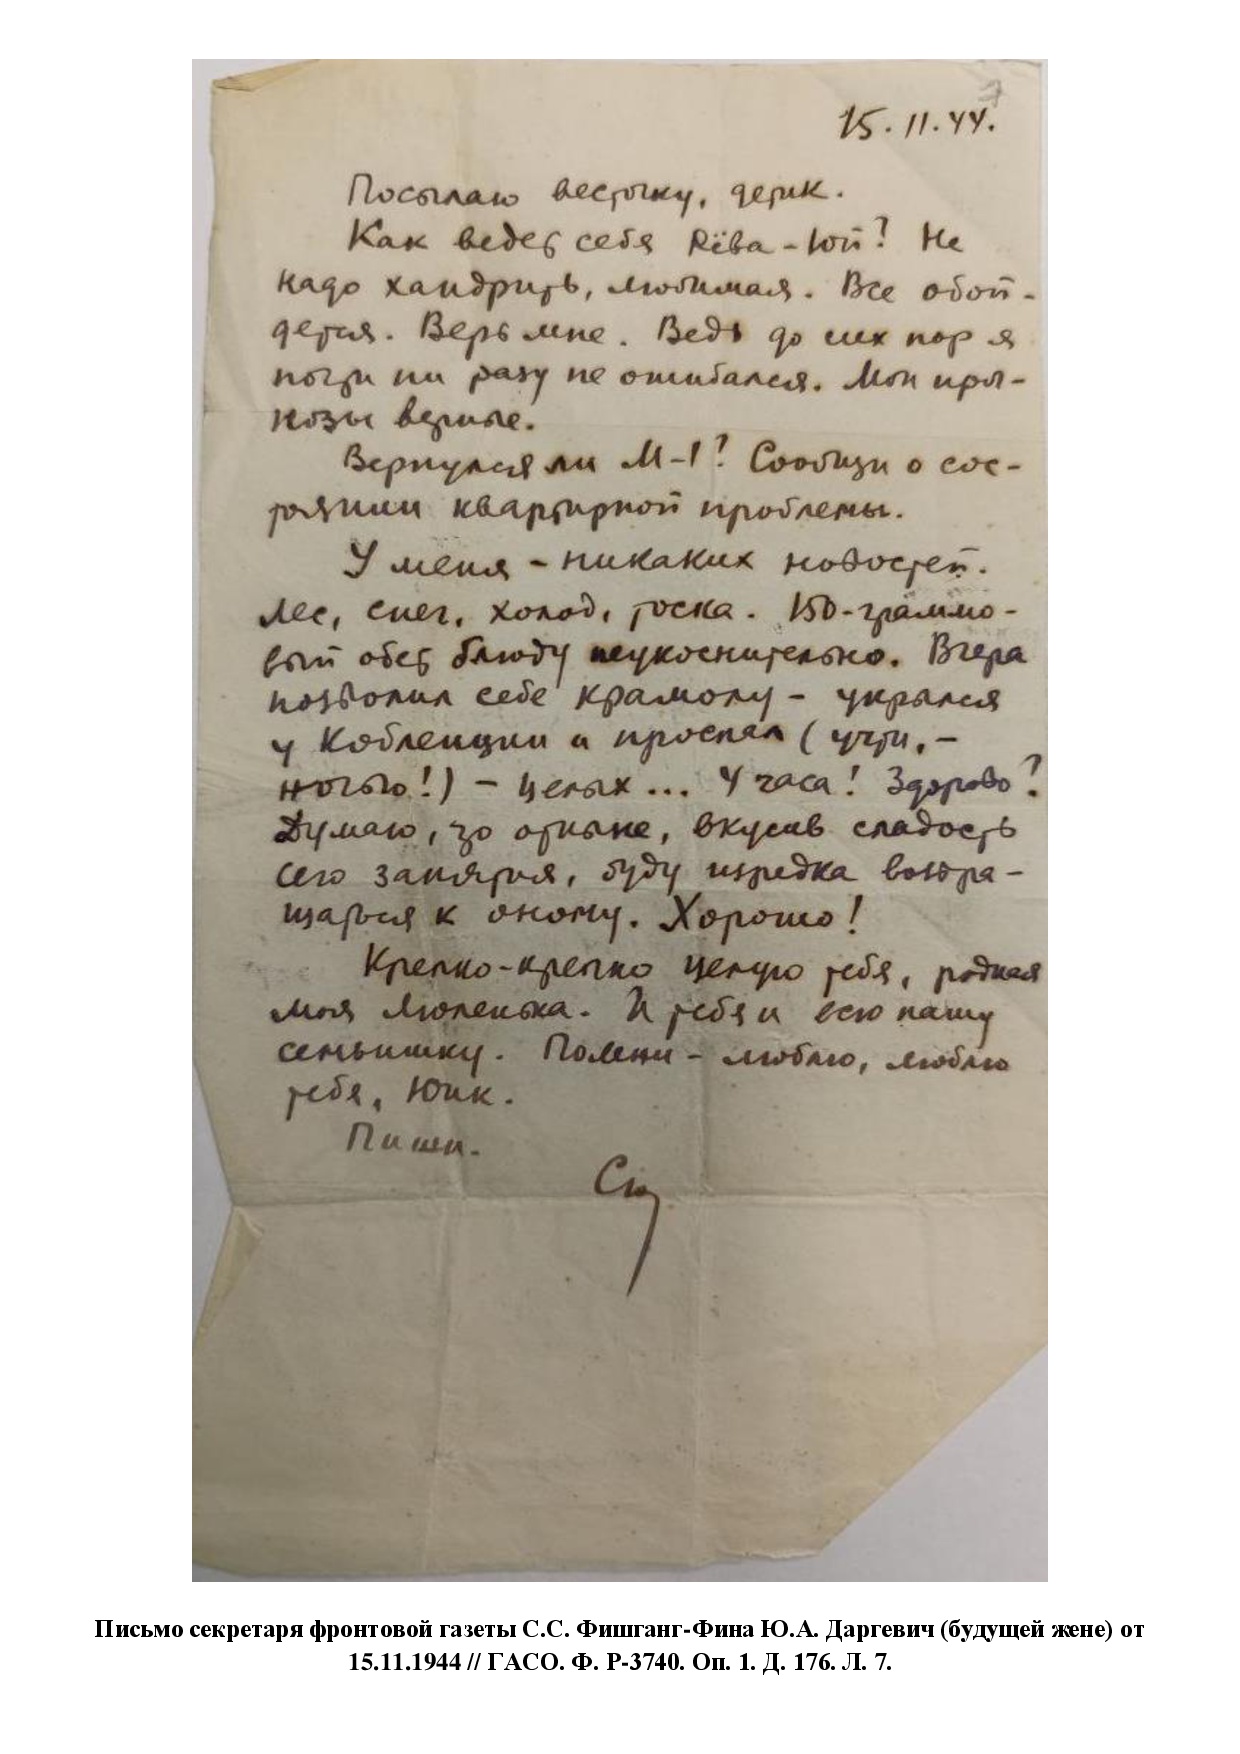 7
15.11.44.
Посылаю весточку, детик.
Как ведет себя Рёва-Юй? Не
надо хандрить, любимая. Все обой-
дется. Верь мне. Ведь до сих пор я
почти ни разу не ошибался. Мои прог-
нозы верные.
Вернулся ли М-1? Сообщи о сос-
тоянии квартирной проблемы.
У меня - никаких новостей.
Лес, снег, холод, тоска. 150-граммо-
вый обет блюду неукоснительно. Вчера
позволил себе крамолу - укрылся
у Кобленции и проспал (учти, -
ночью!) - целых ... 4 часа! Здорово?
Думаю, что отныне, вкусив сладость
сего занятия, буду изредка возвра-
щаться к оному. Хорошо!
Крепко-крепко целую тебя, родная
моя Люленька. И тебя и всю нашу
семьишку. Помни - люблю, люблю
тебя, Юик.
Пиши.
Письмо секретаря фронтовой газеты С.С. Фишганг-Фина Ю.А. Даргевич (будущей жене) от
15.11.1944 // ГАСО. Ф. Р-3740. Оп. 1. Д. 176. Л. 7.